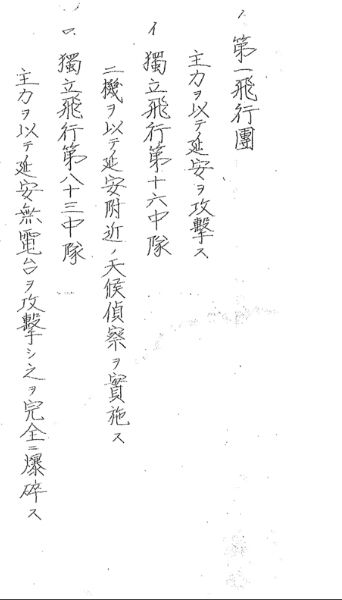 第一飛行團
主力ヲ以テ延安ヲ攻擊ス
イ 獨立飛行第十六中隊
二機ヲ以テ延安附近ノ天候偵察ヲ實施ス
ロ 獨立飛行第八十三中隊
主力ヲ以テ延安無電台ヲ攻擊シ之ヲ完全ニ爆碎ス